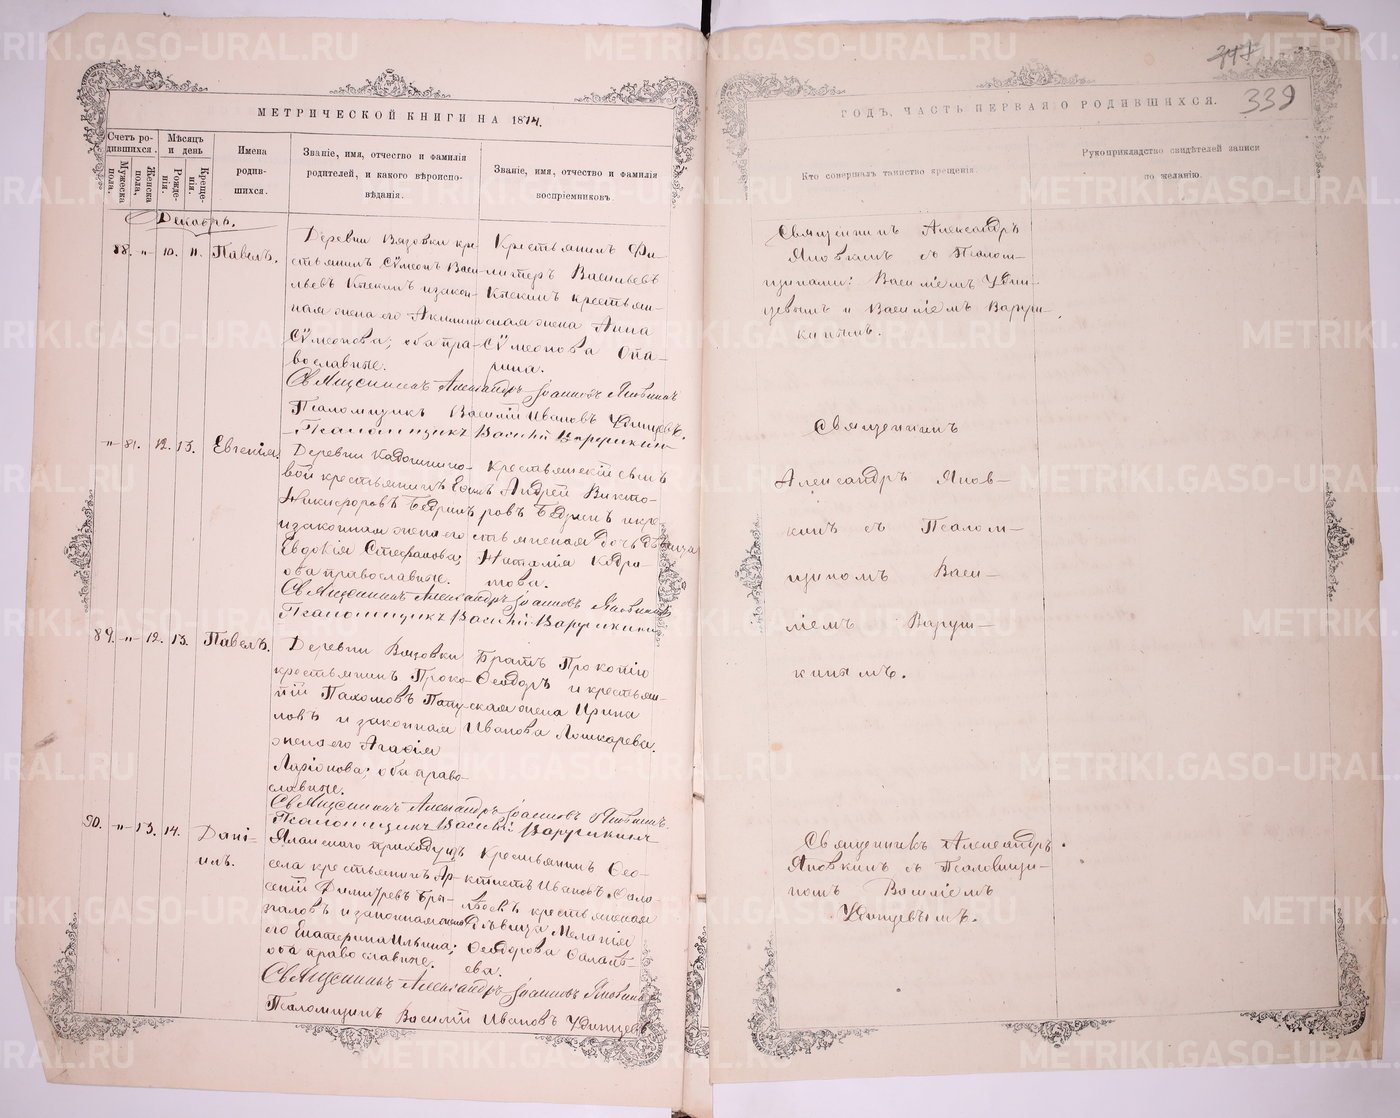 МЕТРИЧЕСКОЙ КНИГИ НА 1874.
Счетъ ро-
дившихся.
Мужеска
пола.
Женска
пола.
Мѣсяцъ
и день
Рожде-
нія.
Креще-
нія.
Имена
родив-
шихся.
Званіе, имя, отчество и фамилія
родителей, и какого вѣроиспо-
вѣданія.
Званіе, имя, отчество и фамилія
воспріемниковъ
Декабрь.
88. " 10. 11. Павелъ.
Деревни Вязовки кре-
стьянинъ Сѵмеонъ Васи-
льевъ Клекинъ и закон-
ная жена его Акилина
Сѵмеонова; оба пра-
вославные.
Крестьянинъ Ди-
митер Васильевъ
Клекинъ крестьян-
ская жена Анна
Сѵмеонова Опа-
рина.
Священникъ Александръ Іоанновъ Яновкинъ
Псаломщикъ Василій Ивановъ Удинцевъ.
Псаломщикъ Василій Варушкинъ
" 81. 12. 13. Евгенія.
Деревни
вой крестьянинъ
Никифоровъ Бедринъ
и законная жена его
Евдокія Стефанова;
оба православные.
Крестьянскій сынъ
Андрей Викто-
ровъ Бедринъ и кре-
стьянская дочь дѣвица
Наталія Кадри-
нова.
Священникъ Александръ Іоанновъ Яновкинъ
Псаломщикъ Василій Варушкинъ
89. " 12. 13. Павелъ.
Деревни Вязовки
крестьянинъ Проко-
пій Пахомовъ Папу-
ловъ и законная
жена его Агафія
Ларіонова; оба право-
славные.
Братъ Прокопію
Ѳеодоръ и крестьян-
ская жена Ирина
Иванова Лошкарева.
Священникъ Александръ Іоанновъ Яновкинъ.
Псаломщикъ Василій Варушкинъ
90. " 13. 14. Дані-
илъ.
Яланского прихода
села крестьянинъ Ар-
сеній Димитревъ Бры-
заловъ и законная жена
его Екатерина Ильина;
оба православные.
Крестьянинъ Ѳео-
ктистъ Ивановъ Сала-
вьевъ крестьянская
дѣвица Меланія
Ѳеодорова Салавь-
ева.
Священникъ Александръ Іоанновъ Яновкинъ
Псаломщикъ Василій Ивановъ Удинцевъ
339
ГОДЪ, ЧАСТЬ ПЕРВАЯ О РОДИВШИХСЯ.
Кто совершалъ таинство крещенія.
Рукоприкладство свидѣтелей записи
по желанію.
Священникъ Александръ
Яновкинъ съ Псалом-
щиками: Василіемъ Удин-
цевымъ и Василіемъ Варуш-
кинымъ.
Священникъ
Александръ Янов-
кинъ съ Псалом-
щикомъ Васи-
ліемъ Варуш-
кинымъ.
Священникъ Александръ
Яновкинъ съ Псаломщи-
комъ Василіемъ
Удинцевымъ.
METRIKI.GASO-URAL.RU